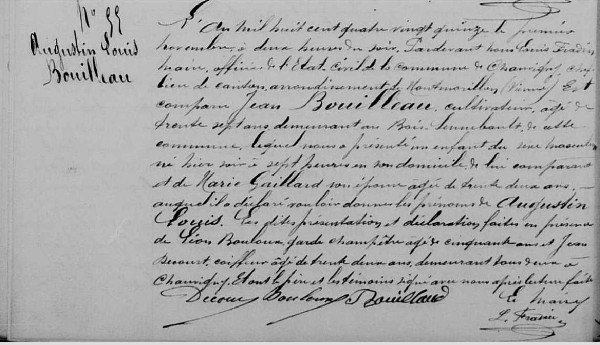 N° 99
Augustin Louis
Bouilleau
L'An mil huit cent quatre vingt quinze le premier
novembre, à deux heures du soir. Pardevant nous Louis
maire, officier de l'État Civil de la commune de Chauvigny, chef
lieu de canton, arrondissement de Montmorillon (Vienne) Est
comparu Jean Bouilleau, cultivateur, âgé de
trente sept ans, demeurant au Bois de cette
commune, lequel nous a présenté un enfant du sexe masculin
né hier soir à sept heures en son domicile de lui comparant
et de Marie Gaillard son épouse âgée de trente deux ans,
auquel il a déclaré vouloir donner les prénoms de Augustin
Louis. Les dites présentation et déclaration faites en présence
de Léon Bouloux, garde champêtre âgé de cinquante ans et Jean
Decourt, coiffeur âgé de trente deux ans, demeurant tous deux à
Chauvigny. Et ont le père et les témoins signé avec nous après lecture faite
Decour Bouloux Bouillaud
Le Maire